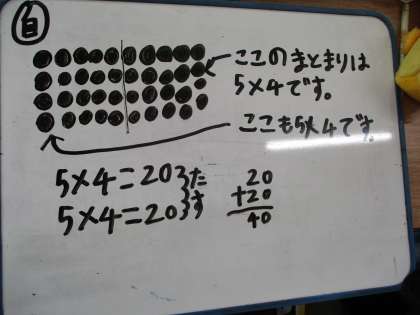 自
ここのまとまりは
5×4です。
ここも5×4です。
5×4=20
5×4=20
たす
20
+20
40